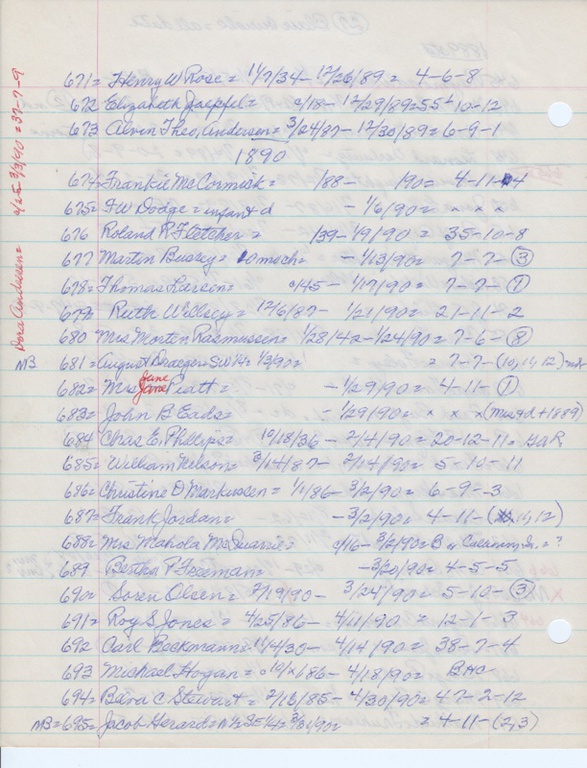 671 = Henry W Rose = 11/7/34 - 12/26/89 = 4-6-8
672 Elizabeth = c/18 - 12/29/89 = 55+10-12
673 Alvin Theo. Andersen = 3/24/87 - 12/30/89 = 6-9-1
1890
674 = Frankie McCormick = /88 - /90 = 4-11-4
675 = F W Dodge = infant-d - 1/6/90 = x x x
676 Roland P. Fletcher = /39 - 1/9/90 = 35-10-8
677 Martin Bussey = 10 mo = - 1/13/90 = 7-7-(3)
678 = Thomas Larsen = c/45 - 1/17/90 = 7-7-(7)
679 Ruth Willsey = 12/6/87 - 1/21/90 = 21-11-2
680 Mrs Morten Rasmussen = 1/28/42 - 1/24/90 = 7-6-(8)
MB 681 = August Draeger = SW 1/4 = 1/2/90 = = 7-7-(10,11,12)
682 = Mrs Jane Jane Piatt = - 1/29/90 = 4-11-(1)
683 = John B. Eads = - 1/29/90 = x x x (mused + 1889)
684 Chas E. Phillips = 10/18/36 - 2/4/90 = 20-12-11 = GAR
685 = William Nelson = 3/14/87 - 2/14/90 = 5-10-11
686 = Christine D Markussen = 1/1/86 - 3/2/90 = 6-9-3
687 = Frank Jordan = - 3/2/90 = 4-11-(11,12)
688 = Mrs Mahola McQuarrie = c/16 - 3/2/90 = B
689 Bertha P Freeman = - 3/20/90 = 4-5-5
690 = Soren Olsen = 2/19/90 - 3/24/90 = 5-10-(3)
691 = Roy S Jones = 4/25/86 - 4/11/90 = 12-1-3
692 Carl Beckmann = 11/4/30 - 4/14/90 = 38-7-4
693 Michael Hogan = c10/x/86 - 4/18/90 =
694 = Bera C Stewart = 2/16/85 - 4/30/90 = 47-2-12
MB = 695 = Jacob Herard = N 1/2 SE 1/4 = 3/31/90 = = 4-11-(2,3)
Dora Andersen = 4/25 - 3/3/90 = 37-7-9